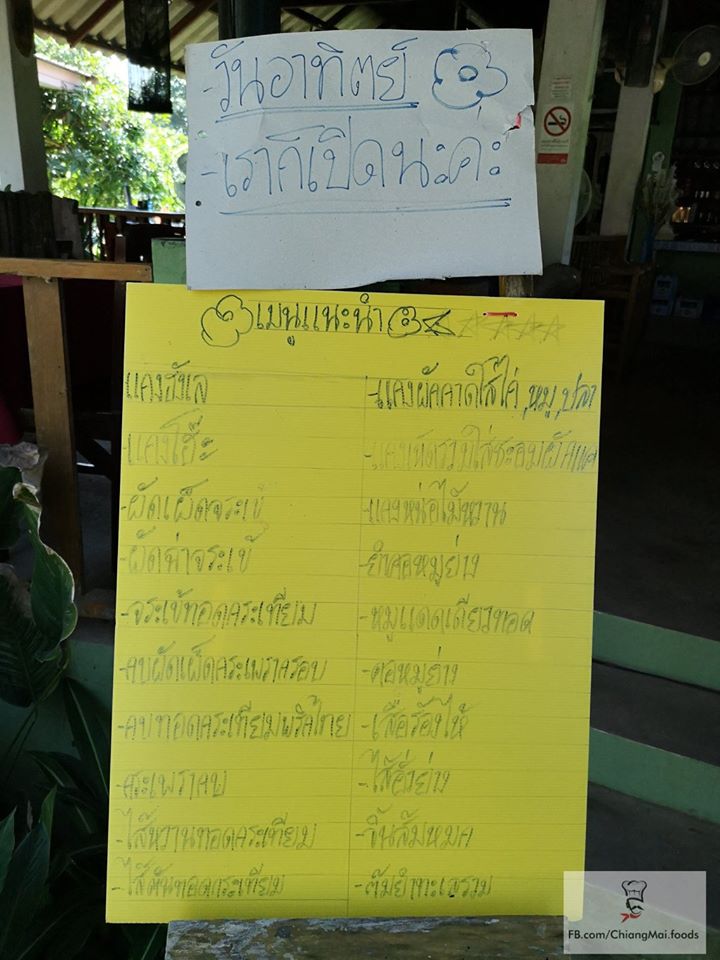 -วันอาทิตย์
-เราก็เปิดนะคะ
เมนูแนะนำ
แกงฮังเล
-แกงโฮ๊ะ
-ผัดเผ็ดจระเข้
-ผัดฉ่าจระเข้
-จระเข้ทอดกระเทียม
-กบผัดเผ็ดกระเพรากรอบ
-กบทอดกระเทียมพริกไทย
-กระเพรากบ
-ไส้หวานทอดกระเทียม
-ไส้ตันทอดกระเทียม
-แกงผักกาดใส่ไก่,หมู,ปลา
-แกงเห็ดรวมใส่ชะอมผัก
-แกงหน่อไม้หวาน
-ยำคอหมูย่าง
-หมูแดดเดียวทอด
-คอหมูย่าง
-เสือร้องไห้
-ไส้อั่วย่าง
-จิ้นส้มหมก
-ต้มยำทะเลรวม
FB.com/ChiangMai.foods